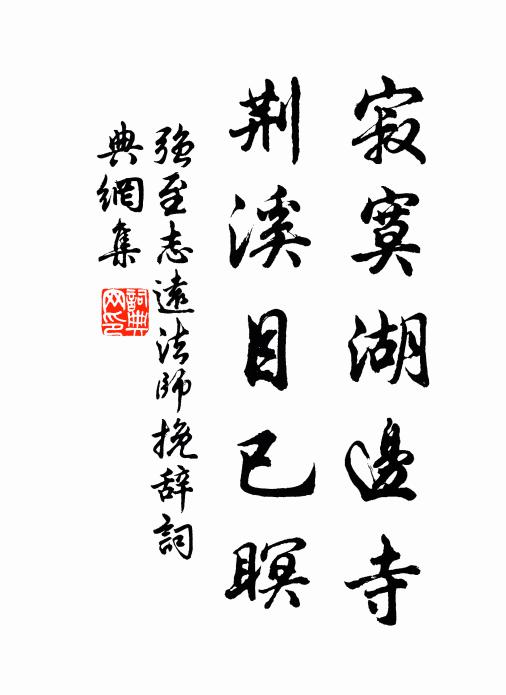 寂寞湖邊寺
荆溪目已瞑
強至志遠法師挽辞詞
典網集
詞典
网印